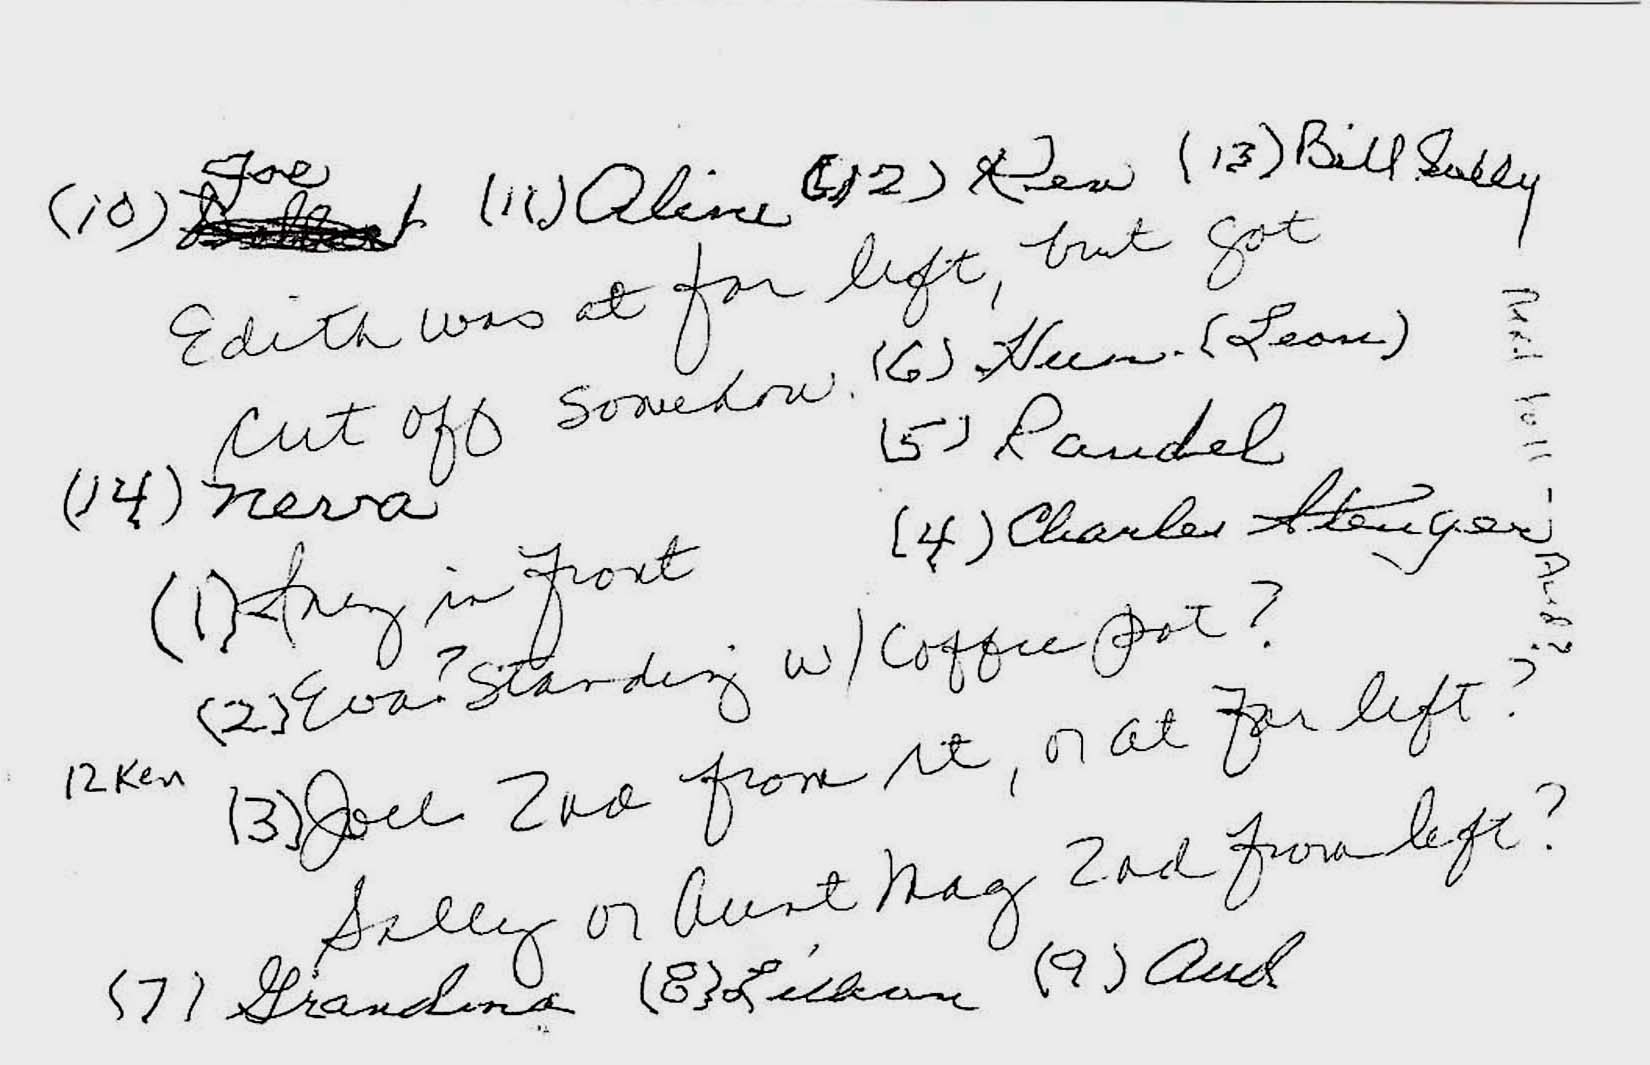 Joe
(10) (11) Aline (12) Ken (13) Bill Sully
Edith was at far left, but got
cut off somehow. (6) (Leon)
(5) Randel
(14) Nerva
(4) Charles Stenger
(1) Inez in front
(2) Eva? Standing w/ coffee pot?
12 Ken
(3) Joel 2nd from rt, or at far left?
Sally or Aunt Mag 2nd from left?
(7) Grandma (8) Lillian (9) Aud